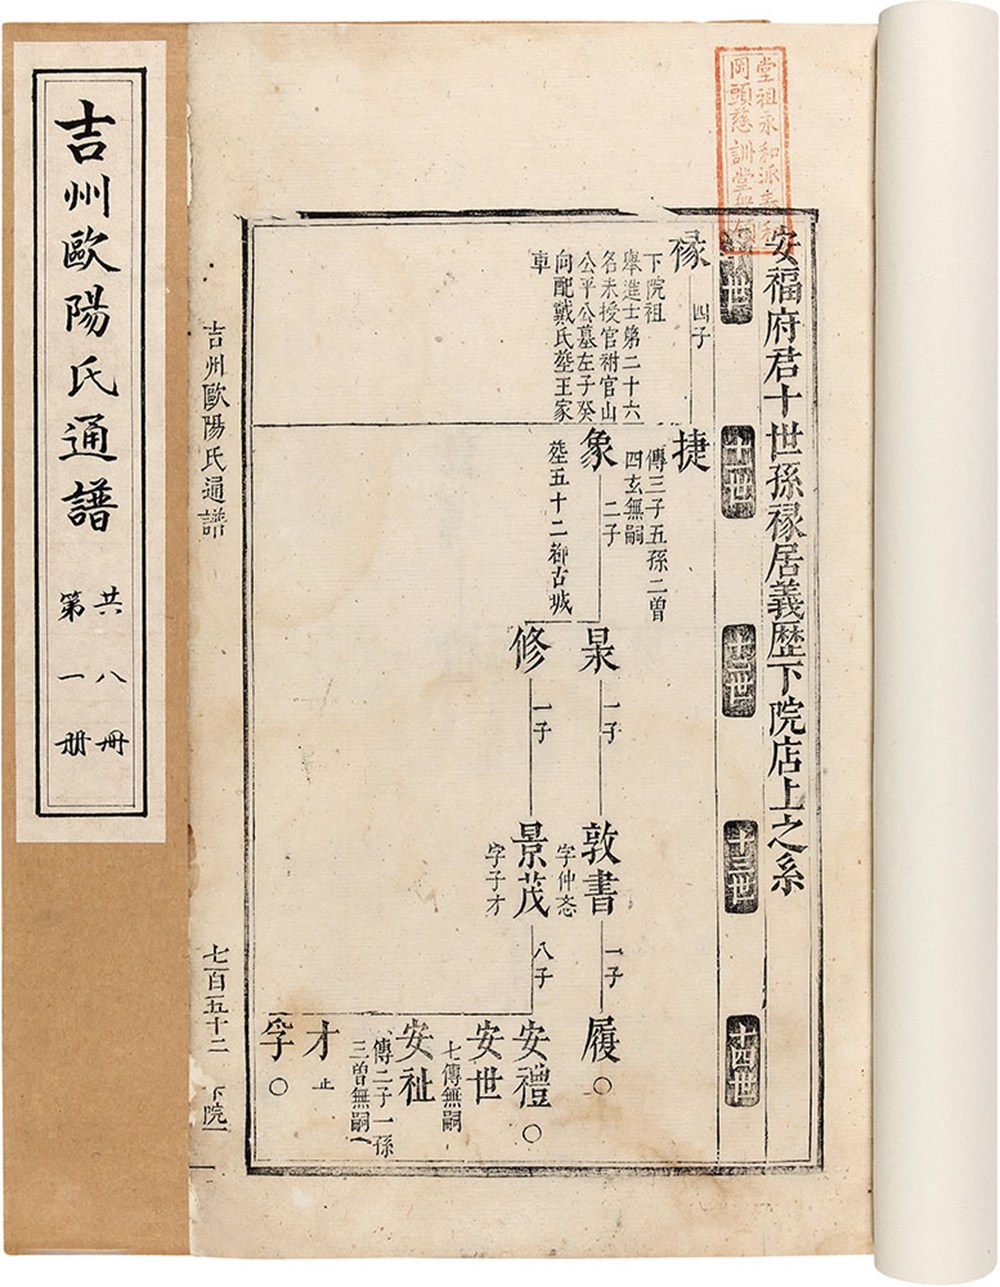 吉州歐陽氏通譜
共八冊
第一册
堂祖永和派泰和
岡頭慈訓堂
安福府君十世孫祿居義歷下院店上之系
世
十一世
十二世
十三世
十四世
祿
四子
下院祖
舉進士第二十六
名未授官祔官山
公平公墓左子癸
向配戴氏塟王家
車
捷
傳三子五孫二曾
四玄無嗣
象
二子
塟五十二都古城
杲
一子
修
一子
敦書
字仲悫
一子
景茂
字子才
八子
履
○
安禮
○
安世
七傳無嗣
安祉
傳二子一孫
三曾無嗣
才
止
孚
○
吉州歐陽氏通譜
七百五十二
下院一